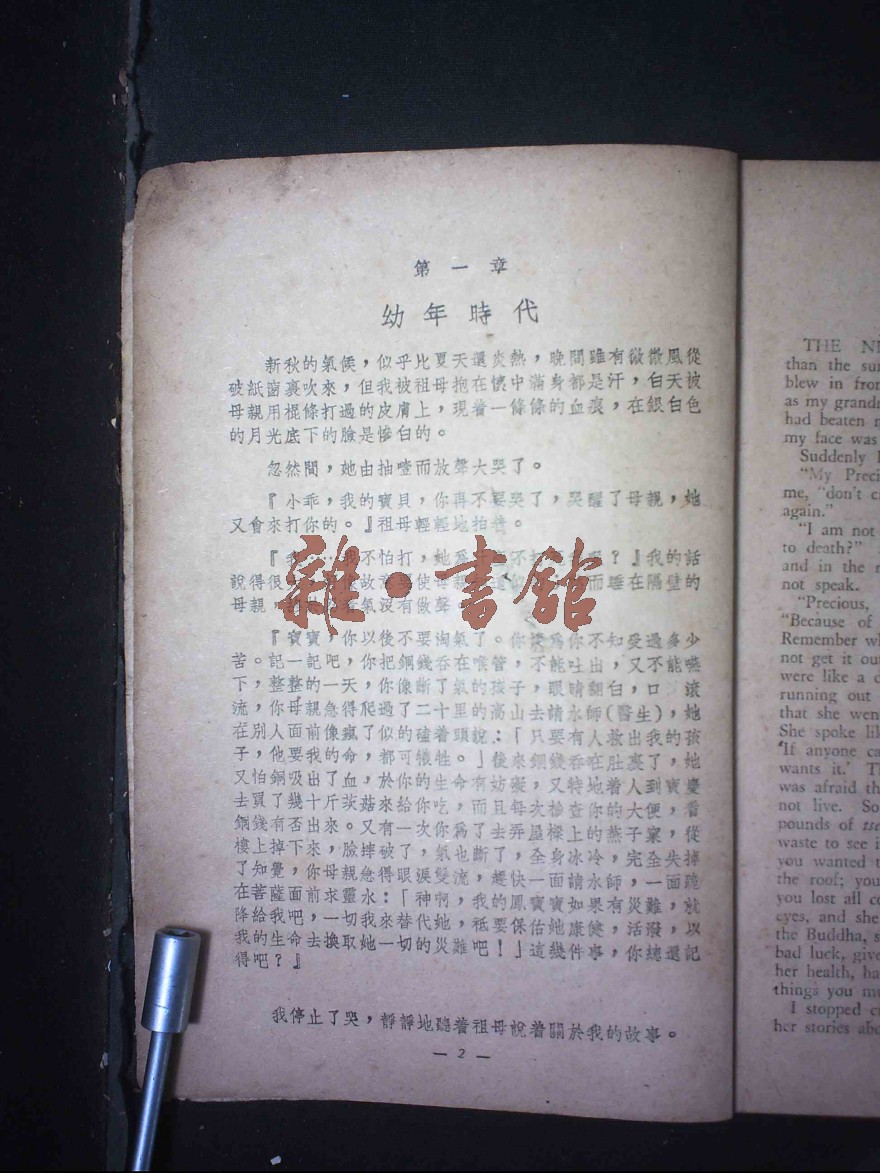 第一章
幼年時代
新秋的氣候，似乎比夏天還炎熱，晚間雖有微微風從
破紙窗裏吹來，但我被祖母抱在懷中滿身都是汗，白天被
母親用棍條打過的皮膚上，現着一條條的血痕，在銀白色
的月光底下的臉是慘白的。
忽然間，她由抽噎而放聲大哭了。
『小乖，我的寶貝，你再不要哭了，哭醒了母親，她
又會來打你的。』祖母輕輕地拍着。
『我……我不怕打，她為什麼不打死我呢？』我的話
說得很 故意要使母親 而睡在隔壁的
母親， 氣沒有做聲。
『寶寶，你以後不要淘氣了。你媽為你不知受過多少
苦。記一記吧，你把銅錢吞在喉管，不能吐出，又不能嚥
下，整整的一天，你像斷了氣的孩子，眼睛翻白，口 滾
流，你母親急得爬過了二十里的高山去請水師(醫生)，她
在別人面前像瘋了似的磕着頭說：「只要有人救出我的孩
子，他要我的命，都可犧牲。」後來銅錢吞在肚裏了，她
又怕銅吸出了血，於你的生命有妨礙，又特地着人到寶慶
去買了幾十斤茨菇來給你吃，而且每次檢查你的大便，看
銅錢有否出來。又有一次你為了去弄屋樑上的燕子窠，從
樓上掉下來，臉摔破了，氣也斷了，全身冰冷，完全失掉
了知覺，你母親急得眼淚雙流，趕快一面請水師，一面跪
在菩薩面前求靈水：「神啊，我的鳳寶寶如果有災難，就
降給我吧，一切我來替代她，祗要保佑她康健，活潑，以
我的生命去換取她一切的災難吧！」這幾件事，你總還記
得吧？』
我停止了哭，靜靜地聽着祖母說着關於我的故事。
— 2 —
雜·書館
THE NI
than the su
blew in fron
as my grand
had beaten m
my face was
Suddenly I
"My Preci
me, "don't c
again."
"I am not
to death?"
and in the r
not speak.
"Precious,
"Because of
Remember w
not get it ou
were like a d
running out
that she wen
She spoke li
'If anyone ca
wants it.' Th
was afraid th
not live. So
pounds of tse
waste to see i
you wanted t
the roof; you
you lost all co
eyes, and she
the Buddha, s
bad luck, give
her health, ha
things you mu
I stopped c
her stories abo